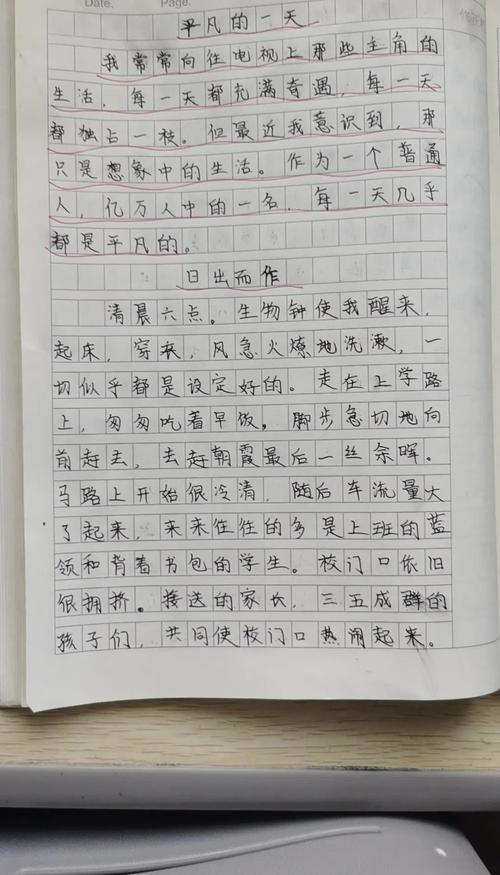 Date.    Page.
平凡的一天
我常常向往电视上那些主角的
生活，每一天都充满奇遇，每一天
都独占一枝。但最近我意识到，那
只是想象中的生活。作为一个普通
人，亿万人中的一名，每一天几乎
都是平凡的。
日出而作
清晨六点。生物钟使我醒来，
起床，穿来，风急火燎地洗漱，一
切似乎都是设定好的。走在上学路
上，匆匆吃着早饭。脚步急切地向
前赶去，去赶朝霞最后一丝余晖。
马路上开始很冷清，随后车流量大
了起来，来来往往的多是上班的蓝
领和背着书包的学生。校门口依旧
很拥挤。接送的家长，三五成群的
孩子们，共同使校门口热闹起来。